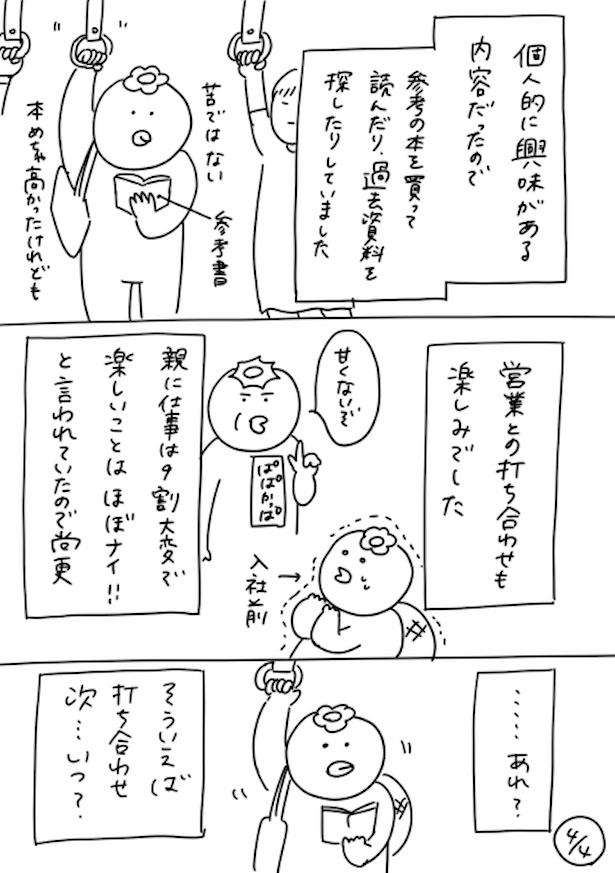 個人的に興味がある
内容だったので
参考の本を買って
読んだり、過去資料を
探したりしていました
苦ではない
参考書
本めちゃ高かったけれども
営業との打ち合わせも
楽しみでした
甘くないぞ
ぱぱかっぱ
入社前
親に仕事は9割大変で
楽しいことはほぼナイ!!
と言われていたので尚更
……あれ?
そういえば
打ち合わせ
次…いつ?
4/4